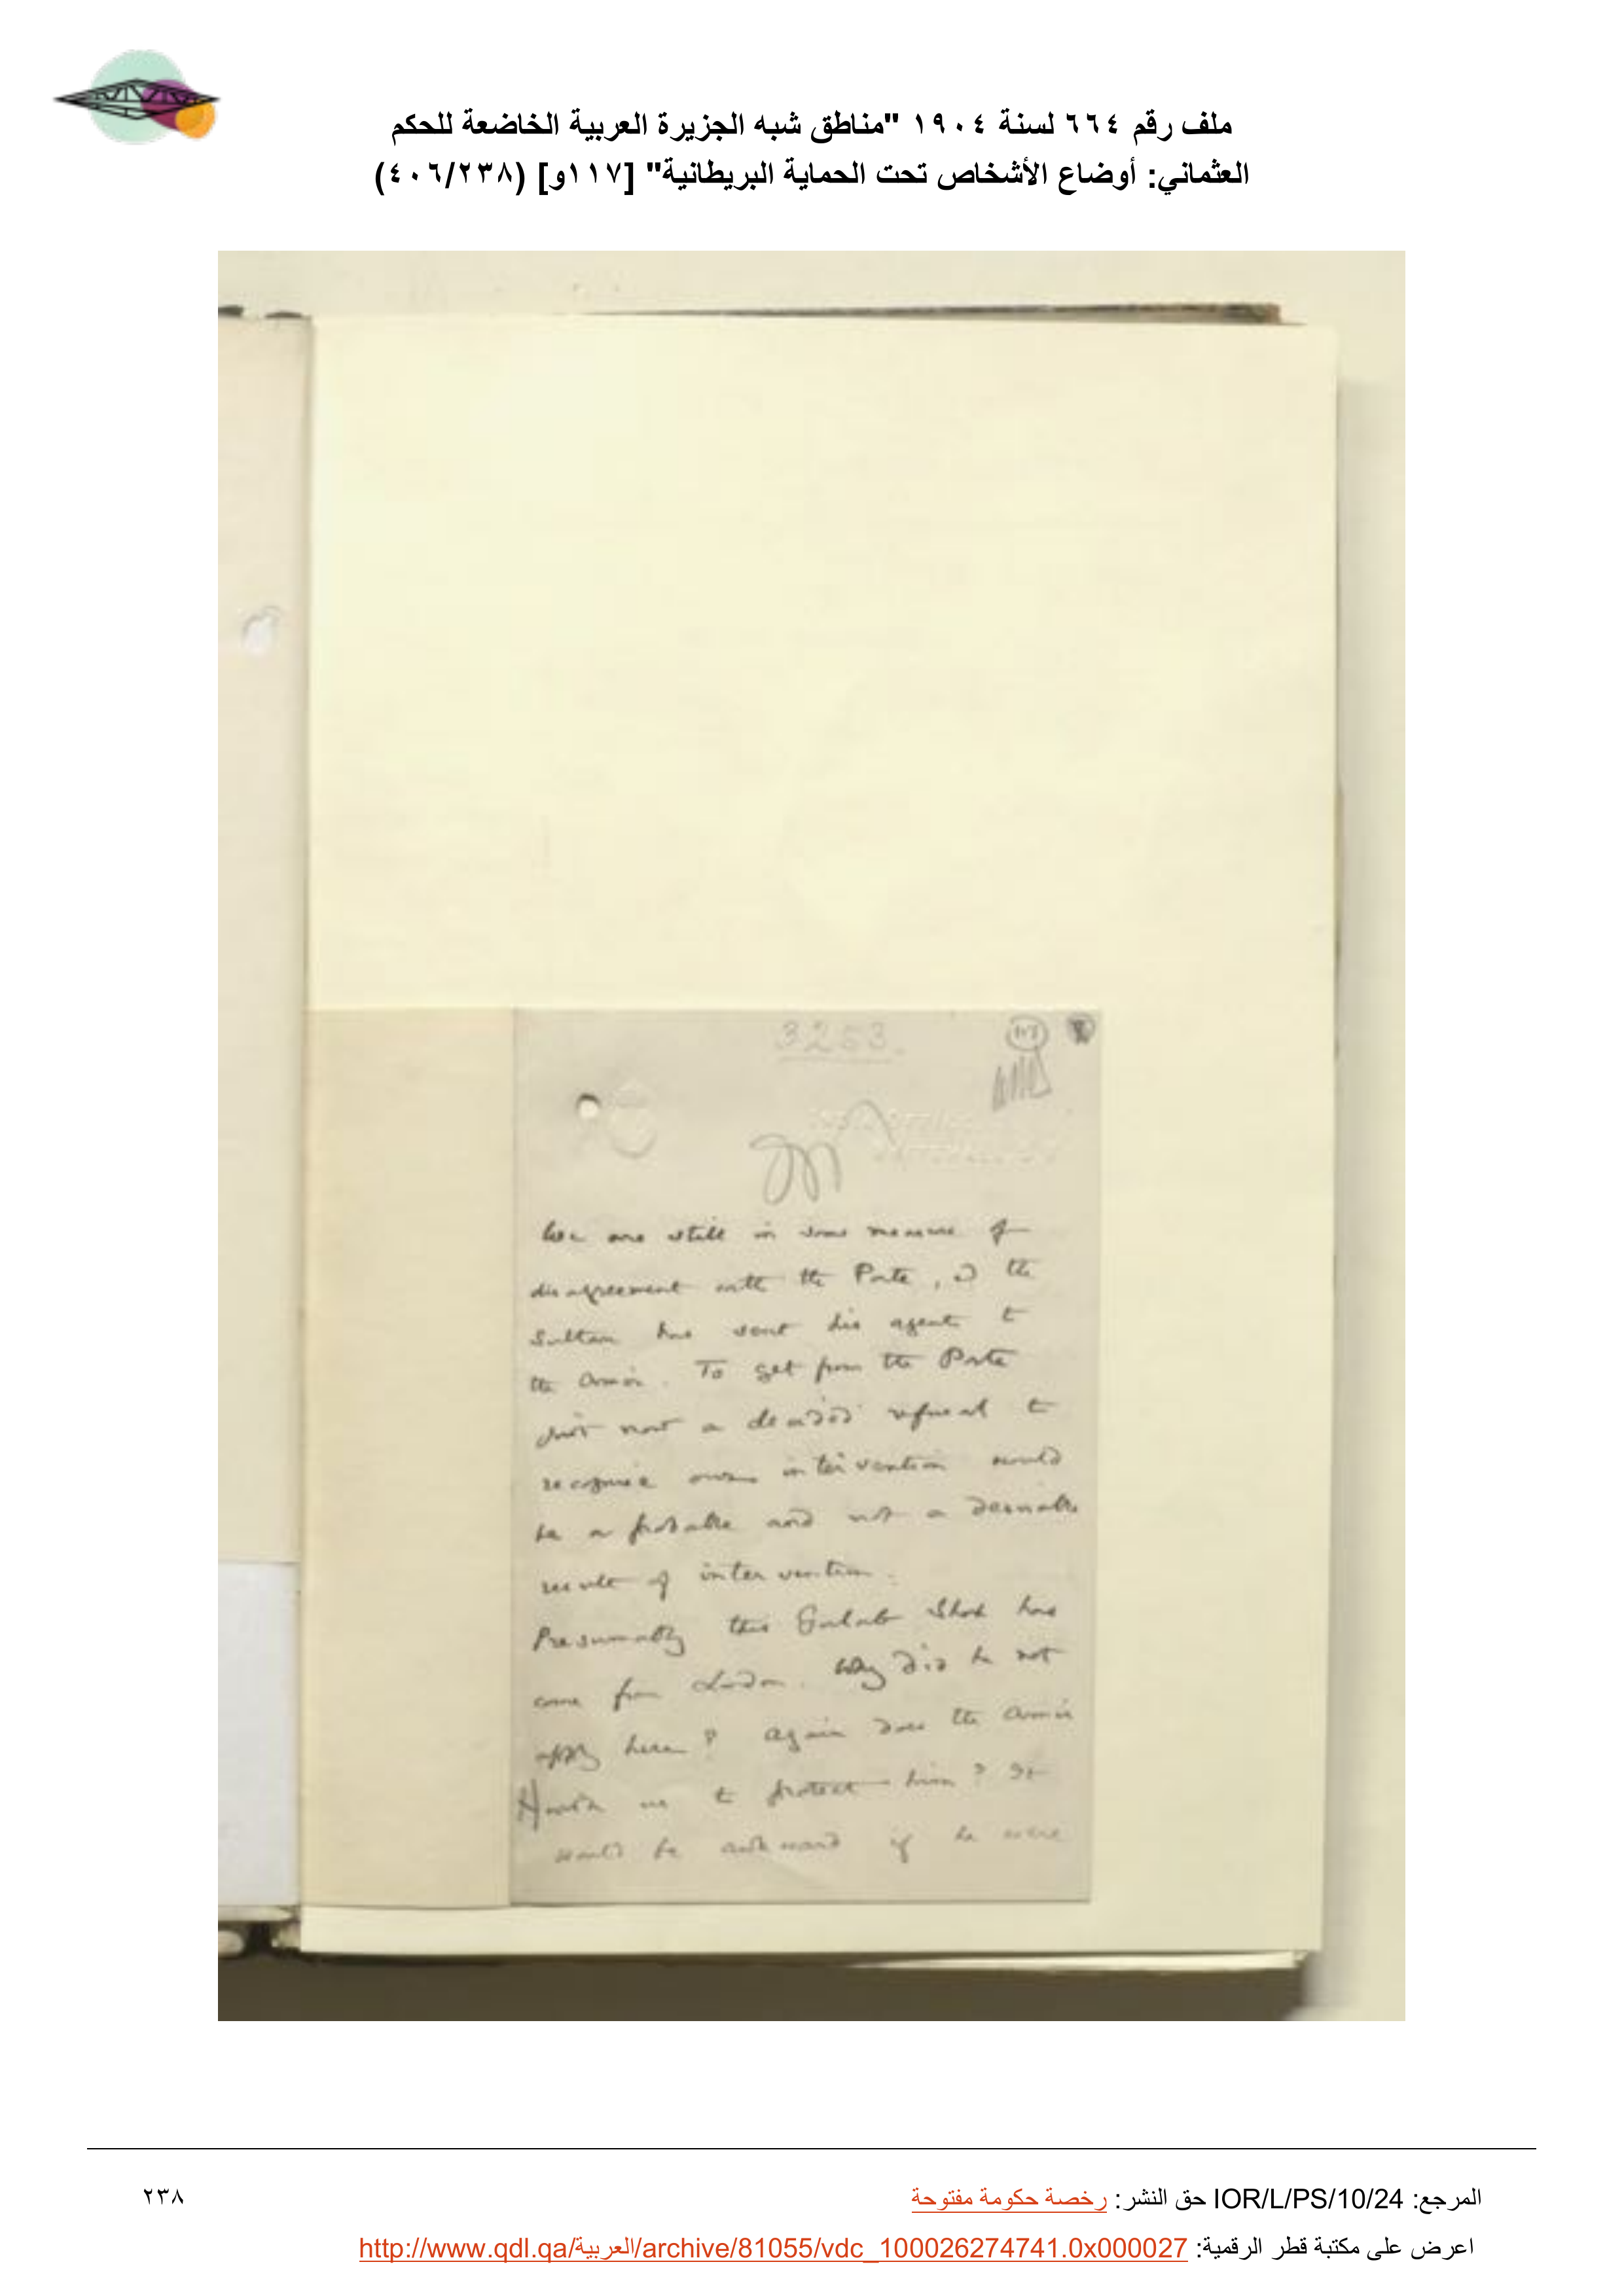 ملف رقم ٦٦٤ لسنة ١٩٠٤ "مناطق شبه الجزيرة العربية الخاضعة للحكم
العثماني: أوضاع الأشخاص تحت الحماية البريطانية" [١١٧و] (٤٠٦/٢٣٨)
3253.
We are still in some measure of
disagreement with the Porte, & the
Sultan has sent his agent to
the Amir. To get from the Porte
just now a decided refusal to
recognise our intervention would
be a probable and not a desirable
result of intervention.
Presumably this Gulab Shah has
come from London. Why did he not
apply here? Again does the Amir
us to protect him? It
would be awkward if he were
المرجع: IOR/L/PS/10/24 حق النشر: رخصة حكومة مفتوحة
٢٣٨
اعرض على مكتبة قطر الرقمية: http://www.qdl.qa/العربية/archive/81055/vdc_100026274741.0x000027